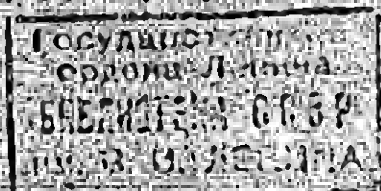 Государст
ордена Ленина
БИБЛИОТЕКА СССР
им. В. И. ЛЕНИНА